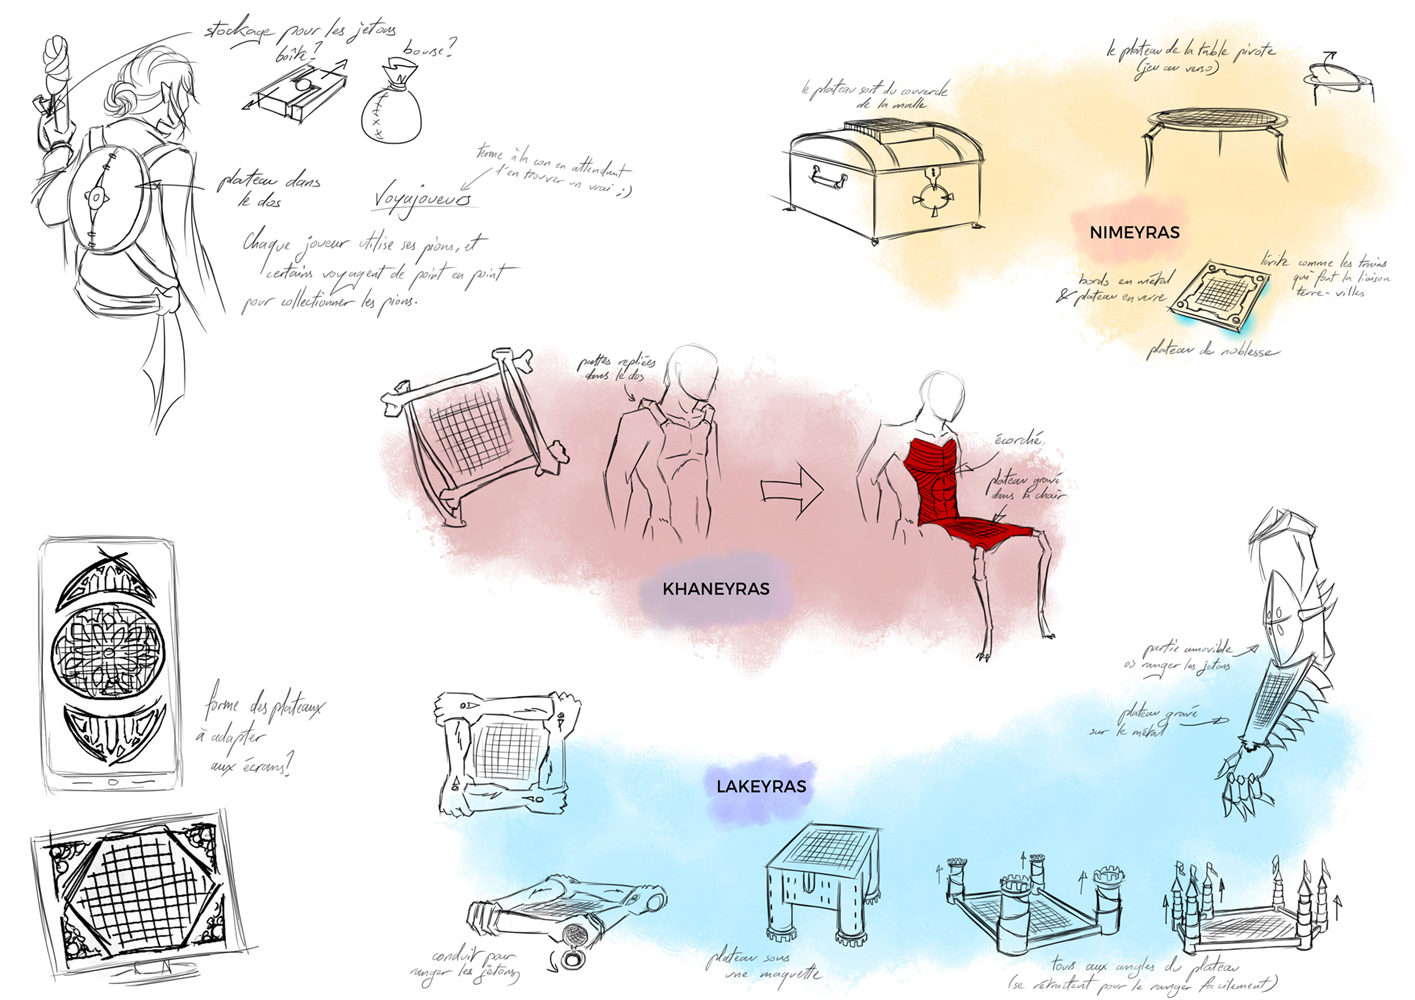 stockage pour les jetons
boîte?
bourse?
plateau dans
le dos
terme à la con en attendant
d'en trouver un vrai ;)
Voyajoueurs
Chaque joueur utilise ses pions, et
certains voyagent de point en point
pour collectionner les pions.
le plateau sort du couvercle
de la malle
le plateau de la table pivote
(jeu au verso)
NIMEYRAS
bords en métal
& plateau en verre
lévite comme les trains
qui font la liaison
terre-villes
plateau de noblesse
pattes repliées
dans le dos
écorché
plateau gravé
dans la chair
KHANEYRAS
forme des plateaux
à adapter
aux écrans?
partie amovible
où ranger les jetons
plateau gravé
sur le métal
LAKEYRAS
conduit pour
ranger les jetons
plateau sous
une maquette
tours aux angles du plateau
(se rétractent pour le ranger facilement)